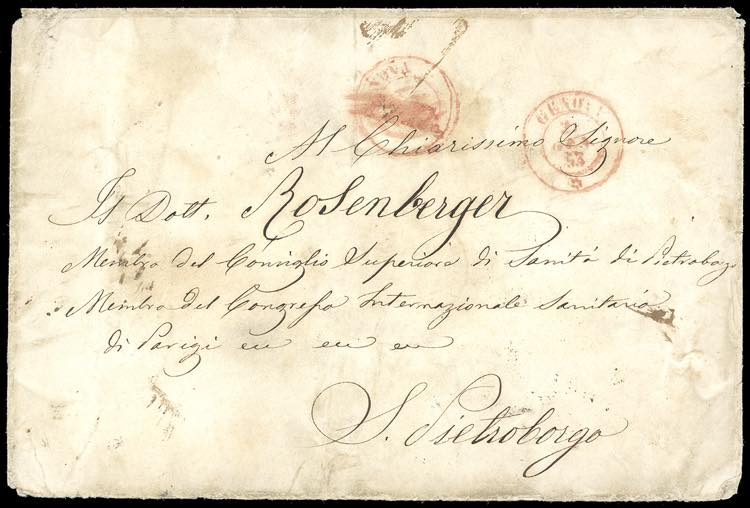 GENOVA
GENOVA
53
Al Chiarissimo Signore
Il Dott. Rosenberger
Membro del Consiglio Superiore di Sanitá di Pietroborgo
Membro del Congresso Internazionale Sanitario
di Parigi ecc ecc ecc
S. Pietroborgo